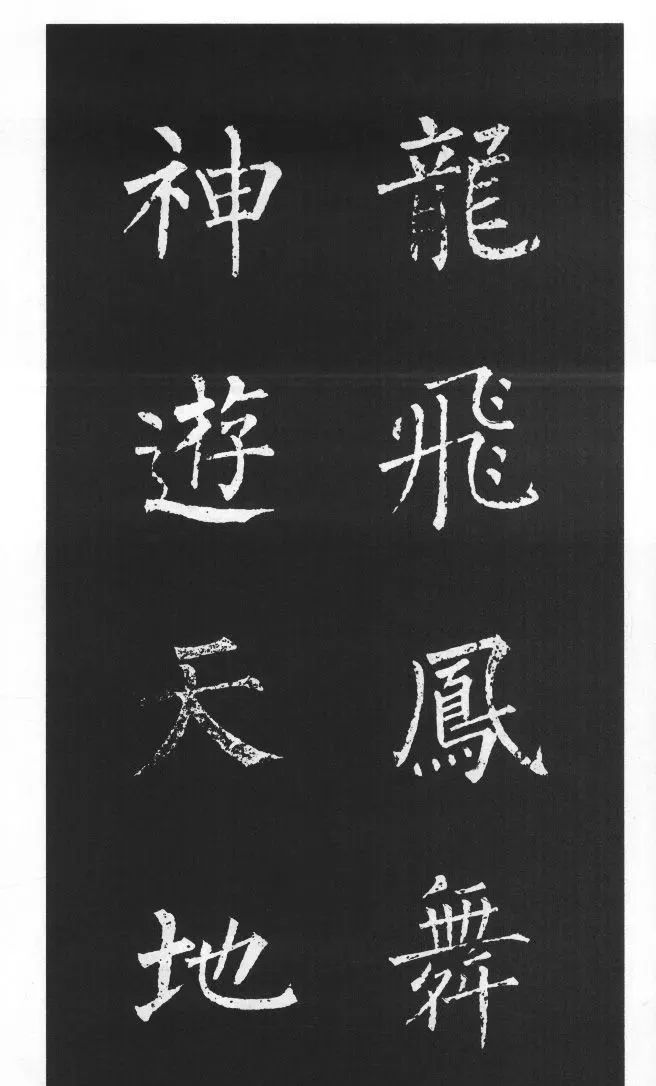 龍飛鳳舞
神遊天地